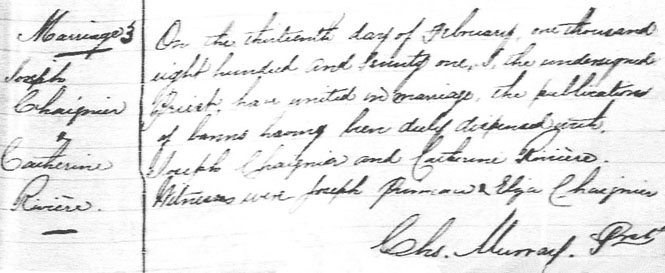 Marriage 3
Joseph
Chaignier
&
Catherine
Rivière.
On the thirteenth day of February, one thousand
eight hundred and seventy one, I, the undersigned
Priest, have united in marriage, the publication
of banns having been duly dispensed with,
Joseph Chaignier and Catherine Rivière.
Witnesses were Joseph & Eliza Chaignier
Chs. Murray. Prst